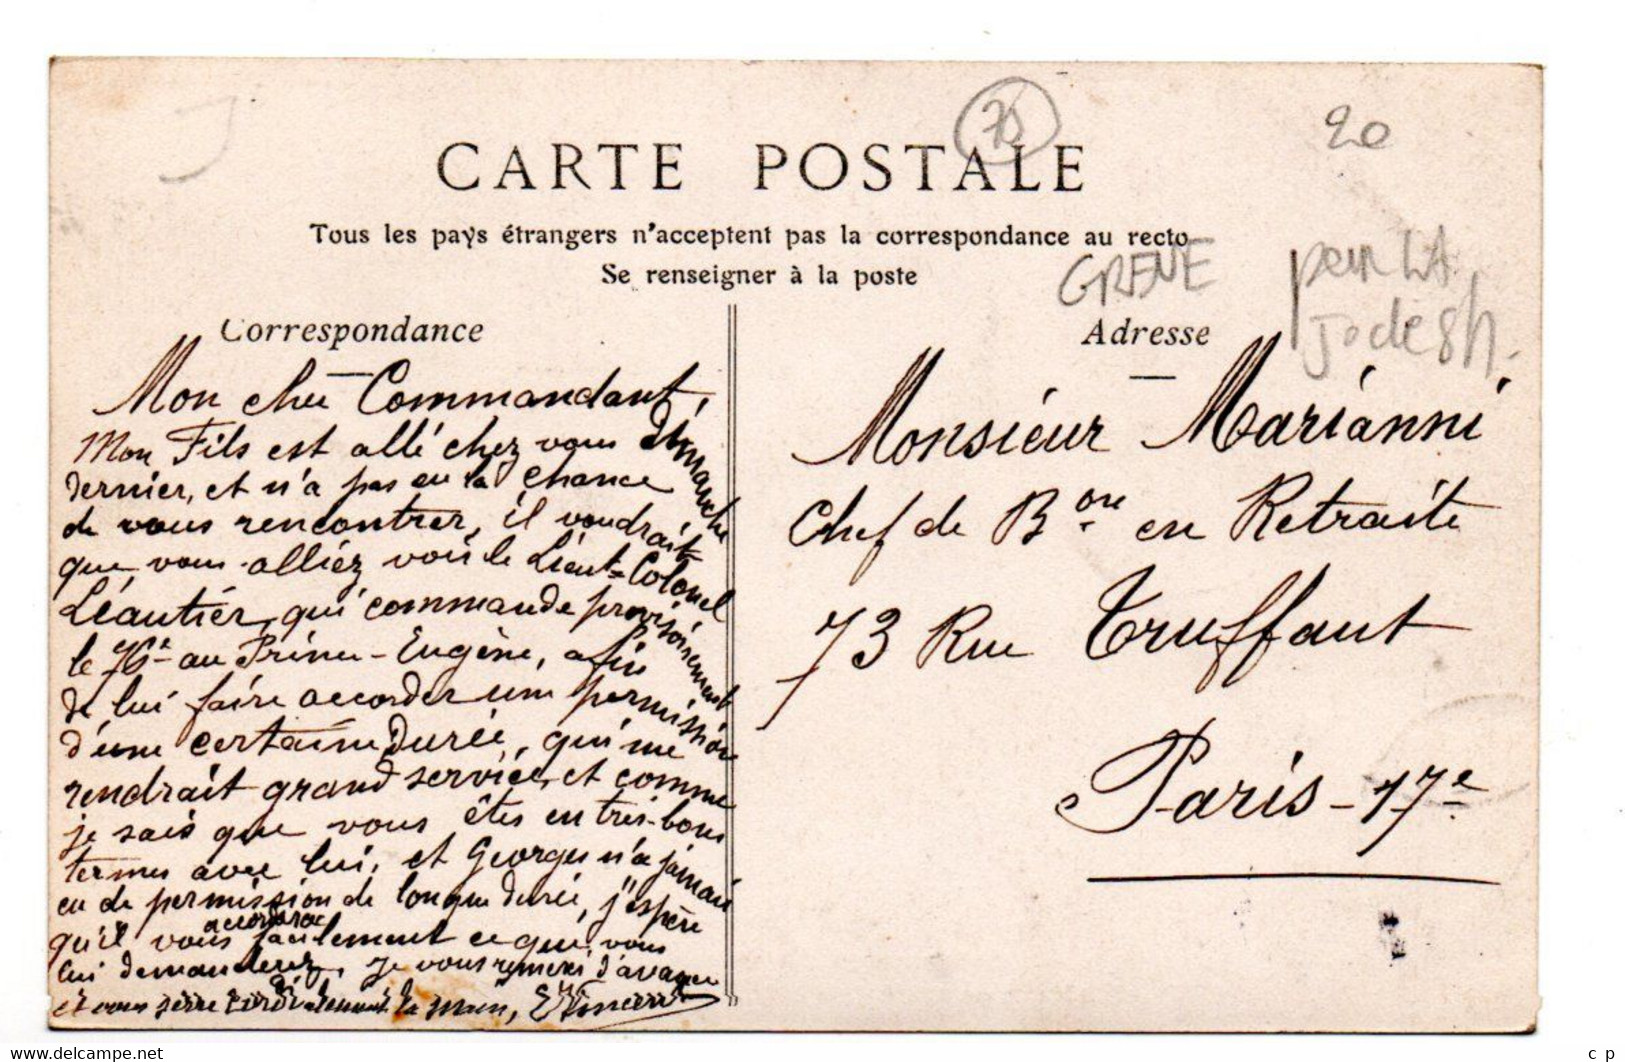 75
20
CARTE POSTALE
Tous les pays étrangers n'acceptent pas la correspondance au recto
Se renseigner à la poste
GREVE
pour LA
Correspondance
Adresse
Mon cher Commandant,
Mon Fils est allé chez vous dimanche
dernier, et n'a pas eu la chance
de vous rencontrer, il voudrait
que vous alliez voir le Lieut-Colonel
Léautier, qui commande provisoirement
le 76e au Prince-Eugène, afin
de lui faire accorder une permission
d'une certaine durée, qui me
rendrait grand service, et comme
je sais que vous êtes en très-bons
termes avec lui, et Georges n'a jamais
eu de permission de longue durée, j'espère
qu'il vous accordera facilement ce que vous
lui demanderez, je vous remercie d'avance
et vous serre cordialement la main, E Vincent
Monsieur Marianni
Chef de Bon en Retraite
73 Rue Truffaut
Paris-17e
delcampe.net
c p